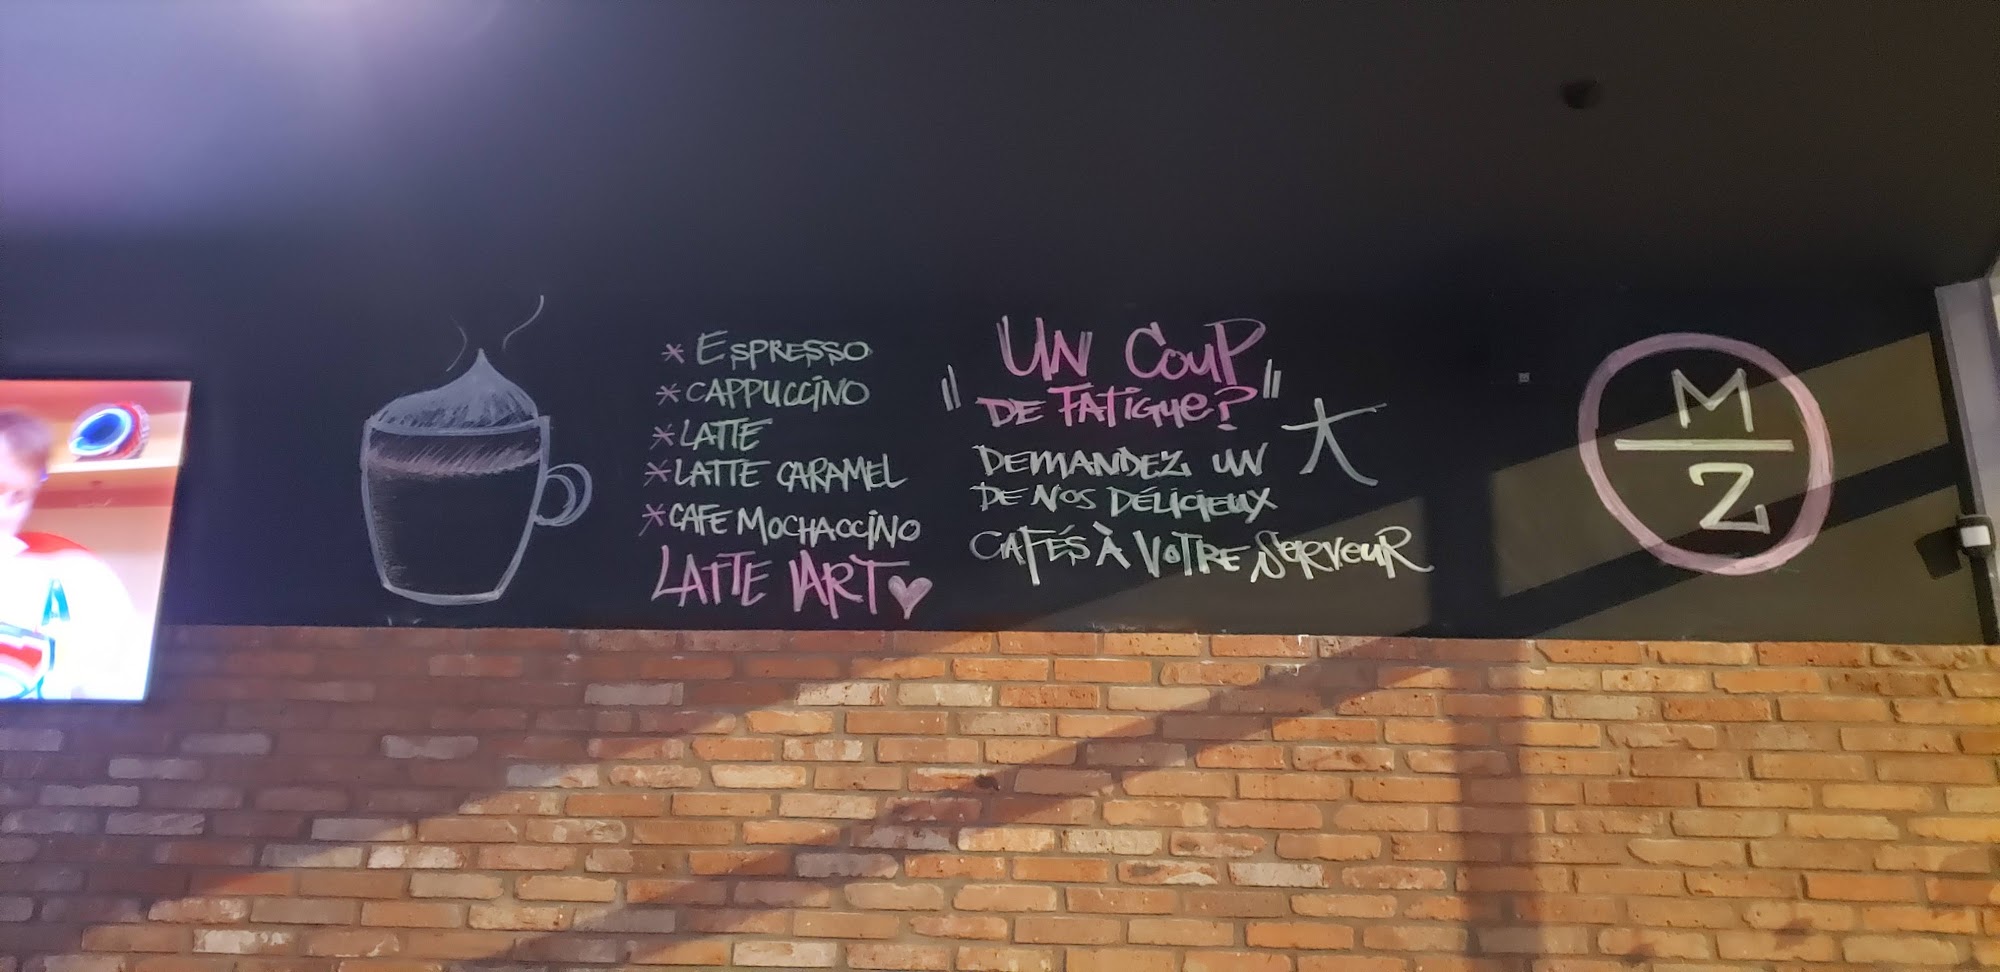 * ESPRESSO
* CAPPUCCINO
* LATTE
* LATTE CARAMEL
* CAFE MOCHACCINO
LATTE ART
"UN COUP
DE FATIGUE?"
DEMANDEZ UN
DE NOS DÉLICIEUX
CAFÉS À VOTRE SERVEUR
M
Z